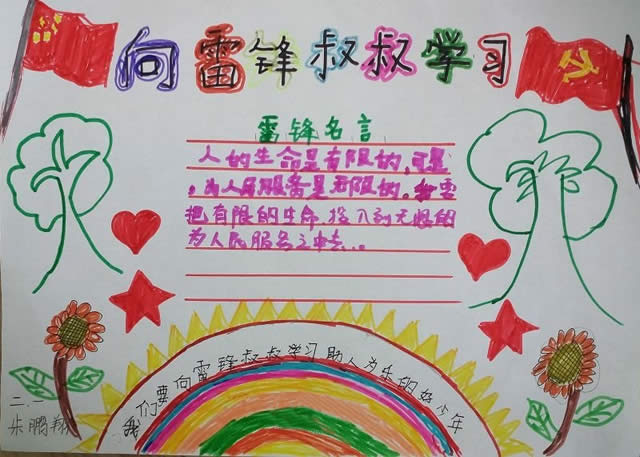 向雷锋叔叔学习
雷锋名言
人的生命是有限的,可是
,为人民服务是无限的。我要
把有限的生命,投入到无限的
为人民服务之中去...
我们要向雷锋叔叔学习助人为乐的好少年
二.一
朱鹏翔